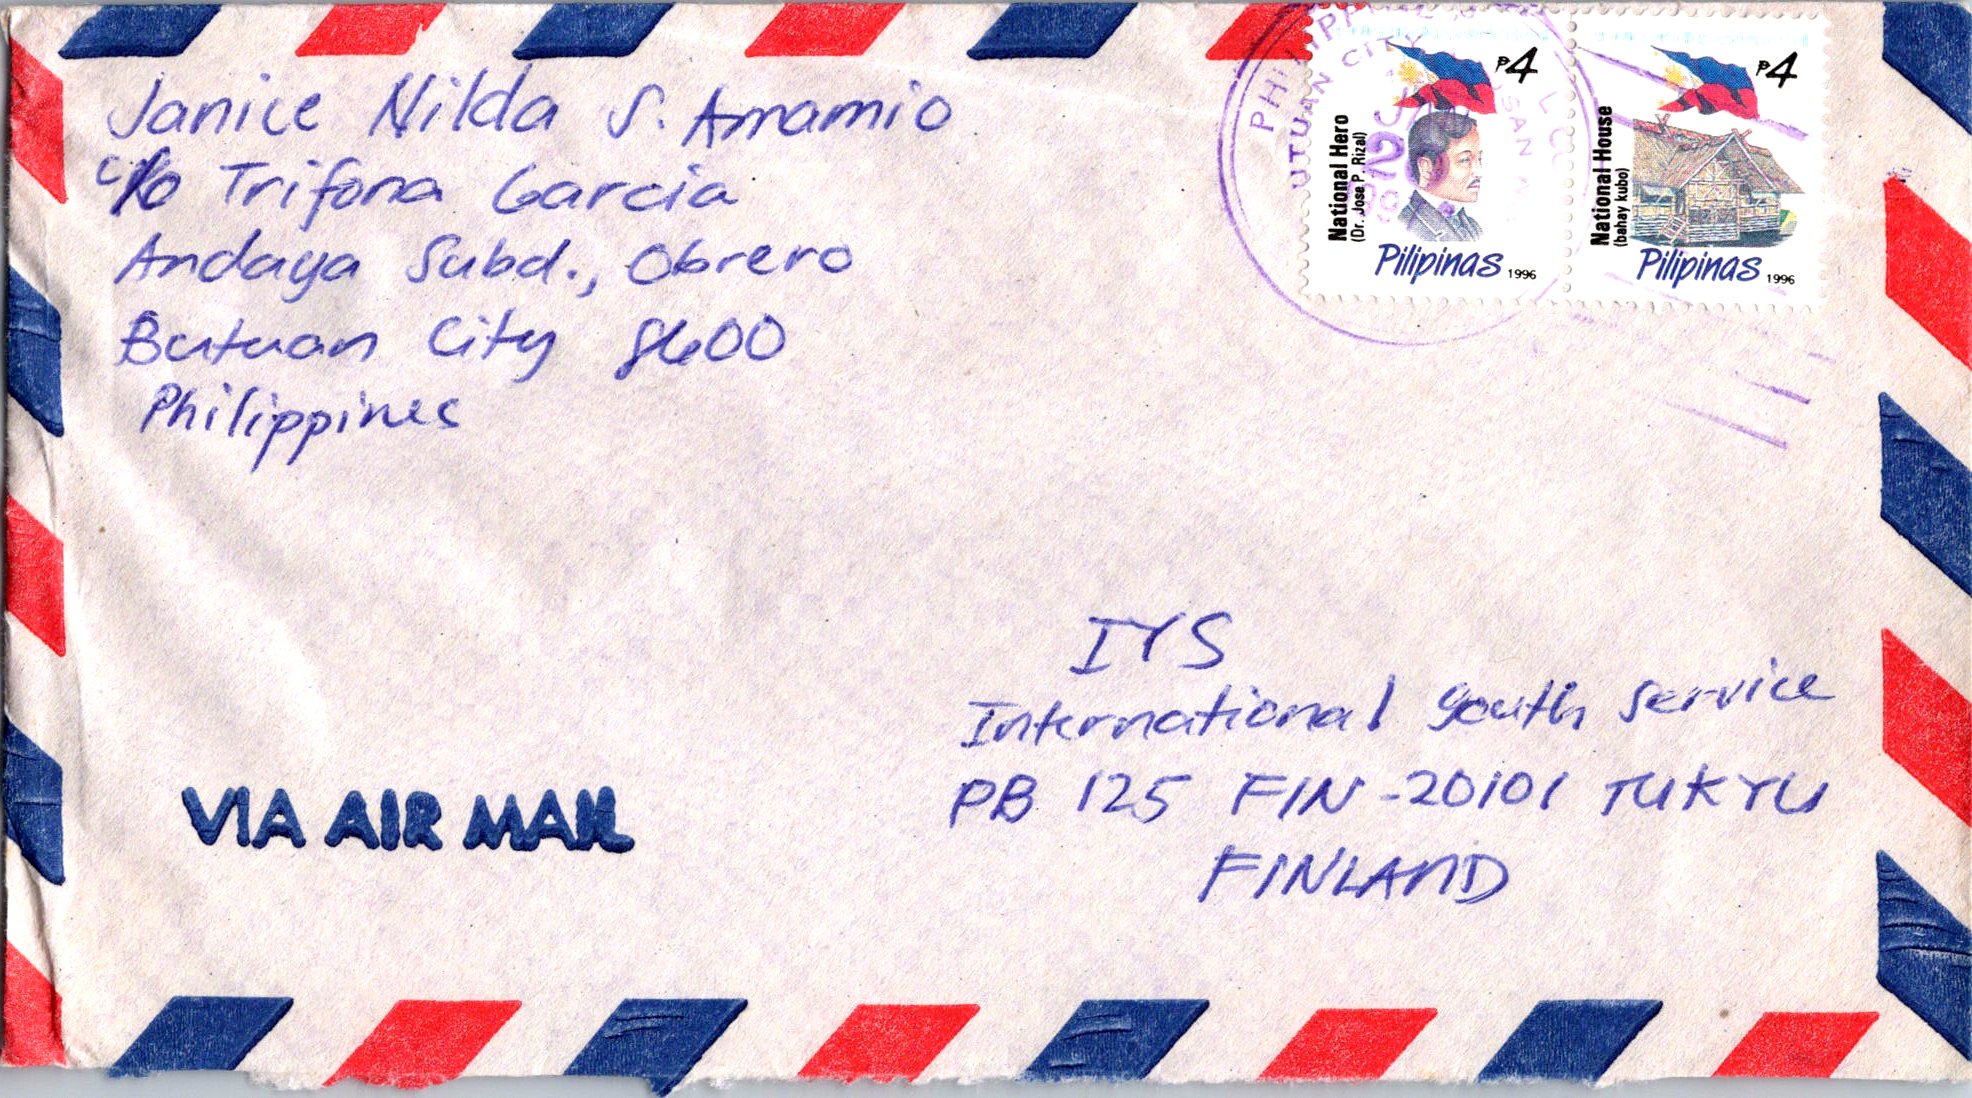 Janice Nilda S. Amamio
c/o Trifona Garcia
Andaya Subd., Obrero
Butuan City 8600
Philippines
PHILIPPINE
UTUAN CITY
USAN
National Hero
(Dr. Jose P. Rizal)
₱4
Pilipinas 1996
National House
(bahay kubo)
₱4
Pilipinas 1996
IYS
International Youth Service
PB 125 FIN-20101 TUKYU
FINLAND
VIA AIR MAIL